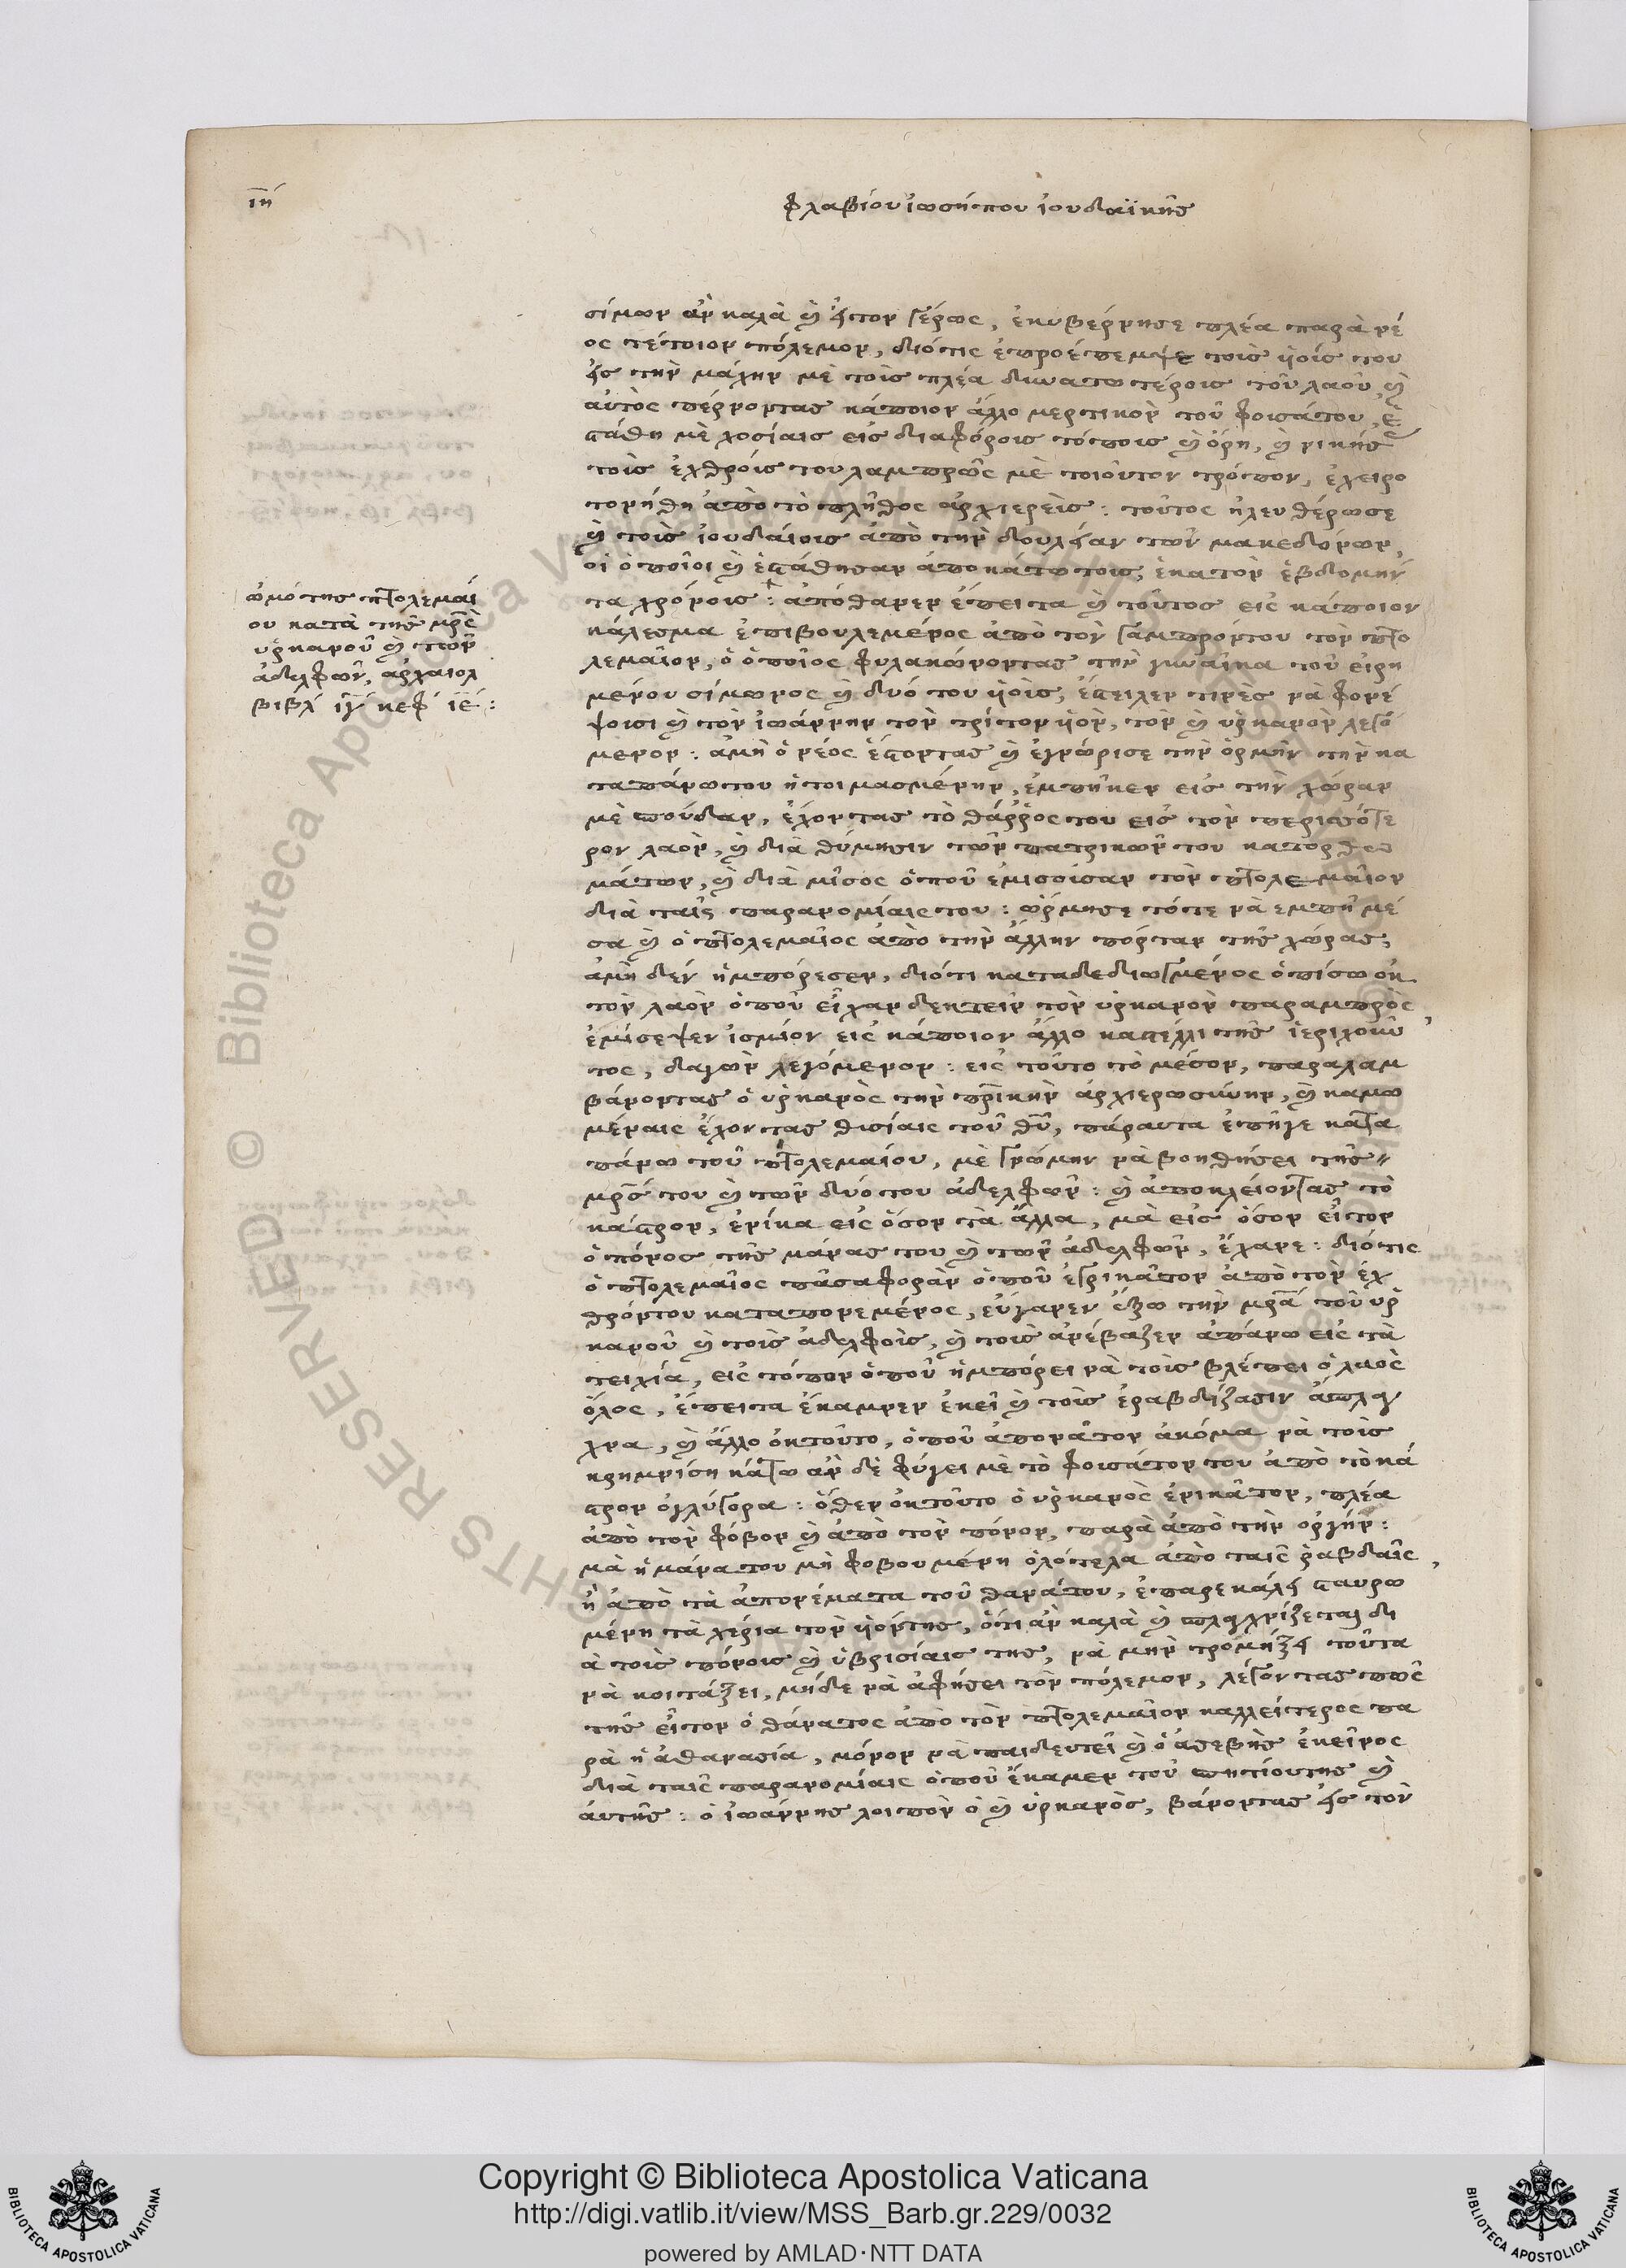 ιη΄
φλαβίου ἰωσήπου ἰουδαϊκῆς
σίμων ἂν καλὰ καὶ ἦτον γέρος, ἐκυβέρνησε πλέα παρὰ νέ
ος τέτοιον πόλεμον, διότις ἐπροέπεμψε τοὶς ὑϊοίς του
εἰς τὴν μάχην μὲ τοὶς πλέα δυνατωτέροις τοῦ λαοῦ, καὶ
αὐτὸς πέρνοντας κάποιον ἄλλο μερτικὸν τοῦ φουσάτου, ἐ
στάθη μὲ χοσίαις εἰς διαφόροις τόποις καὶ ὄρη, καὶ νικήσας
τοὶς ἐχθροίς του λαμπρῶς μὲ τοιοῦτον τρόπον, ἐχειρο
τονήθη ἀπὸ τὸ πλῆθος ἀρχιερεὶς: τοῦτος ἠλευθέρωσε
καὶ τοὶς ἰουδαίοις ἀπὸ τὴν δουλείαν τῶν μακεδόνων,
οἱ ὁποῖοι καὶ ἐστάθησαν ἀποκάτω τοις, ἑκατὸν ἑβδομήν
τα χρόνοις: ἀπόθανεν ἔπειτα καὶ τοῦτος εἰς κάποιον
κάλεσμα ἐπιβουλεμένος ἀπὸ τὸν γάμπρόντου τὸν πτο
λεμαῖον, ὁ ὁποῖος φυλακώνοντας τὴν γυναῖκα τοῦ εἰρη
μένου σίμωνος καὶ δυό του ὑϊοὶς, ἔστειλεν τινὲς νὰ φονέ
ψουσι καὶ τὸν ἰωάννην τὸν τρίτον ὑϊὸν, τὸν καὶ ὑρκανὸν λεγό
μενον: ἀμὴ ὁ νέος ἔστοντας καὶ ἐγνώρισε τὴν ὁρμὴν τὴν κα
ταπάνωτου ἡτοιμασμένην, ἐμπῆκεν εἰς τὴν χώραν
μὲ σπούδαν, ἔχοντας τὸ θάῤῥος του εἰς τὸν περισσότε
ρον λαὸν, καὶ διὰ θύμησιν τῶν πατρικῶν του κατορθω
μάτων, καὶ διὰ μῖσος ὁποῦ ἐμισοῦσαν τὸν πτολεμαῖον
διὰ ταὶς παρανομίαις του: ὥρμησε τότε νὰ εμπῆ μέ
σα καὶ ὁ πτολεμαῖος ἀπὸ τὴν ἄλλην πόρταν τῆς χώρας,
ἀμὴ δὲν ἠμπόρεσεν, διότι καταδεδιωγμένος ὀπίσω ἐκ
τὸν λαὸν ὁποῦ εἶχαν δεκτεῖν τὸν ὑρκανὸν παραμπρὸς,
ἐμίσεψεν ἰσμίον εἰς κάποιον ἄλλο καστέλλι τῆς ἱεριχοῦν
τος, δαγὼν λεγόμενον: εἰς τοῦτο τὸ μέσον, παραλαμ
βάνοντας ὁ ὑρκανὸς τὴν πρικὴν ἀρχιερωσύνην, καὶ καμω
μέναις ἔχοντας θυσίαις τοῦ θῦ, πάραυτα ἐπῆγε κατα
πάνω τοῦ πτολεμαίου, μὲ γνώμην νὰ βοηθήσει τῆς
μρσ του καὶ τῶν δυό του ἀδελφῶν: καὶ ἀποκλείοντας τὸ
κάστρον, ἐνίκα εἰς ὅσον τὰ ἄλλα, μὰ εἰς ὅσον εἶτον
ὁ πόνος τῆς μάνας του καὶ τῶν ἀδελφῶν, ἔχανε: διότις
ὁ πτολεμαῖος πᾶσαφορὰν ὁποῦ ἐγνικᾶτον ἀπὸ τὸν ἐχ
θρόντου καταπονεμένος, εὔγανεν ἔξω τὴν μρα τοῦ ὑρ
κανοῦ καὶ τοὶς ἀδελφοὶς, καὶ τοὶς ἀνέβαζεν ἀπάνω εἰς τὰ
τειχία, εἰς τόπον ὁποῦ ἠμπόρει νὰ τοὶς βλέπει ὁ λαὸς
ὅλος, ἔπειτα ἔκαμνεν ἐκεῖ καὶ τοὶς ἐραβδίζασιν ἄσπλαγ
χνα, καὶ ἄλλο ἐκτοῦτο, ὁποῦ ἀπονᾶτον ἀκόμα νὰ τοὶς
κρημνίση κάτω ἂν δὲ φύγει μὲ τὸ φουσάτον του ἀπὸ τὸ κά
στρον ὀγλύγορα: ὅθεν ἐκτοῦτο ὁ ὑρκανὸς ἐνικᾶτον, πλέα
ἀπὸ τὸν φόβον καὶ ἀπὸ τὸν πόνον, παρὰ ἀπὸ τὴν ὀργήν:
μὰ ἡ μάνα του μὴ φοβουμένη ὁλότελα ἀπὸ ταὶς ῥαβδαῖς,
ἢ ἀπὸ τὰ ἀπονέματα τοῦ θανάτου, ἐπαρεκάλει σταυρω
μένη τὰ χέρια τὸν ὑϊόντης, ὅτι ἂν καλὰ καὶ σπλαγχνίζεται δι
ὰ τοὶς πόνοις καὶ ὑβρισίαις της, νὰ μὴν τρομήξει τοῦτα
νὰ κοιτάζει, μηδε νὰ ἀφήσει τὸν πόλεμον, λέγοντας πῶς
τῆς εἶτον ὁ θάνατος ἀπὸ τὸν πτολεμαῖον καλλείτερος πα
ρὰ ἡ ἀθανασία, μόνον νὰ παιδευτεῖ καὶ ὁ ἀσεβὴς ἐκεῖνος
διὰ ταὶς παρανομίαις ὁποῦ ἔκαμεν τοῦ σπητίουτης καὶ
ἀυτῆς: ὁ ἰωάννης λοιπὸν ὁ καὶ ὑρκανὸς, βάνοντας εἰς τὸν
ὠμότης πτολεμαί
ου κατὰ τῆς μρς
ὑρκανοῦ καὶ τῶν
ἀδελφῶν, ἀρχαιολ
βιβλ ιγ κεφ ιε:
Copyright © Biblioteca Apostolica Vaticana
http://digi.vatlib.it/view/MSS_Barb.gr.229/0032
powered by AMLAD·NTT DATA
BIBLIOTECA APOSTOLICA VATICANA
BIBLIOTECA APOSTOLICA VATICANA